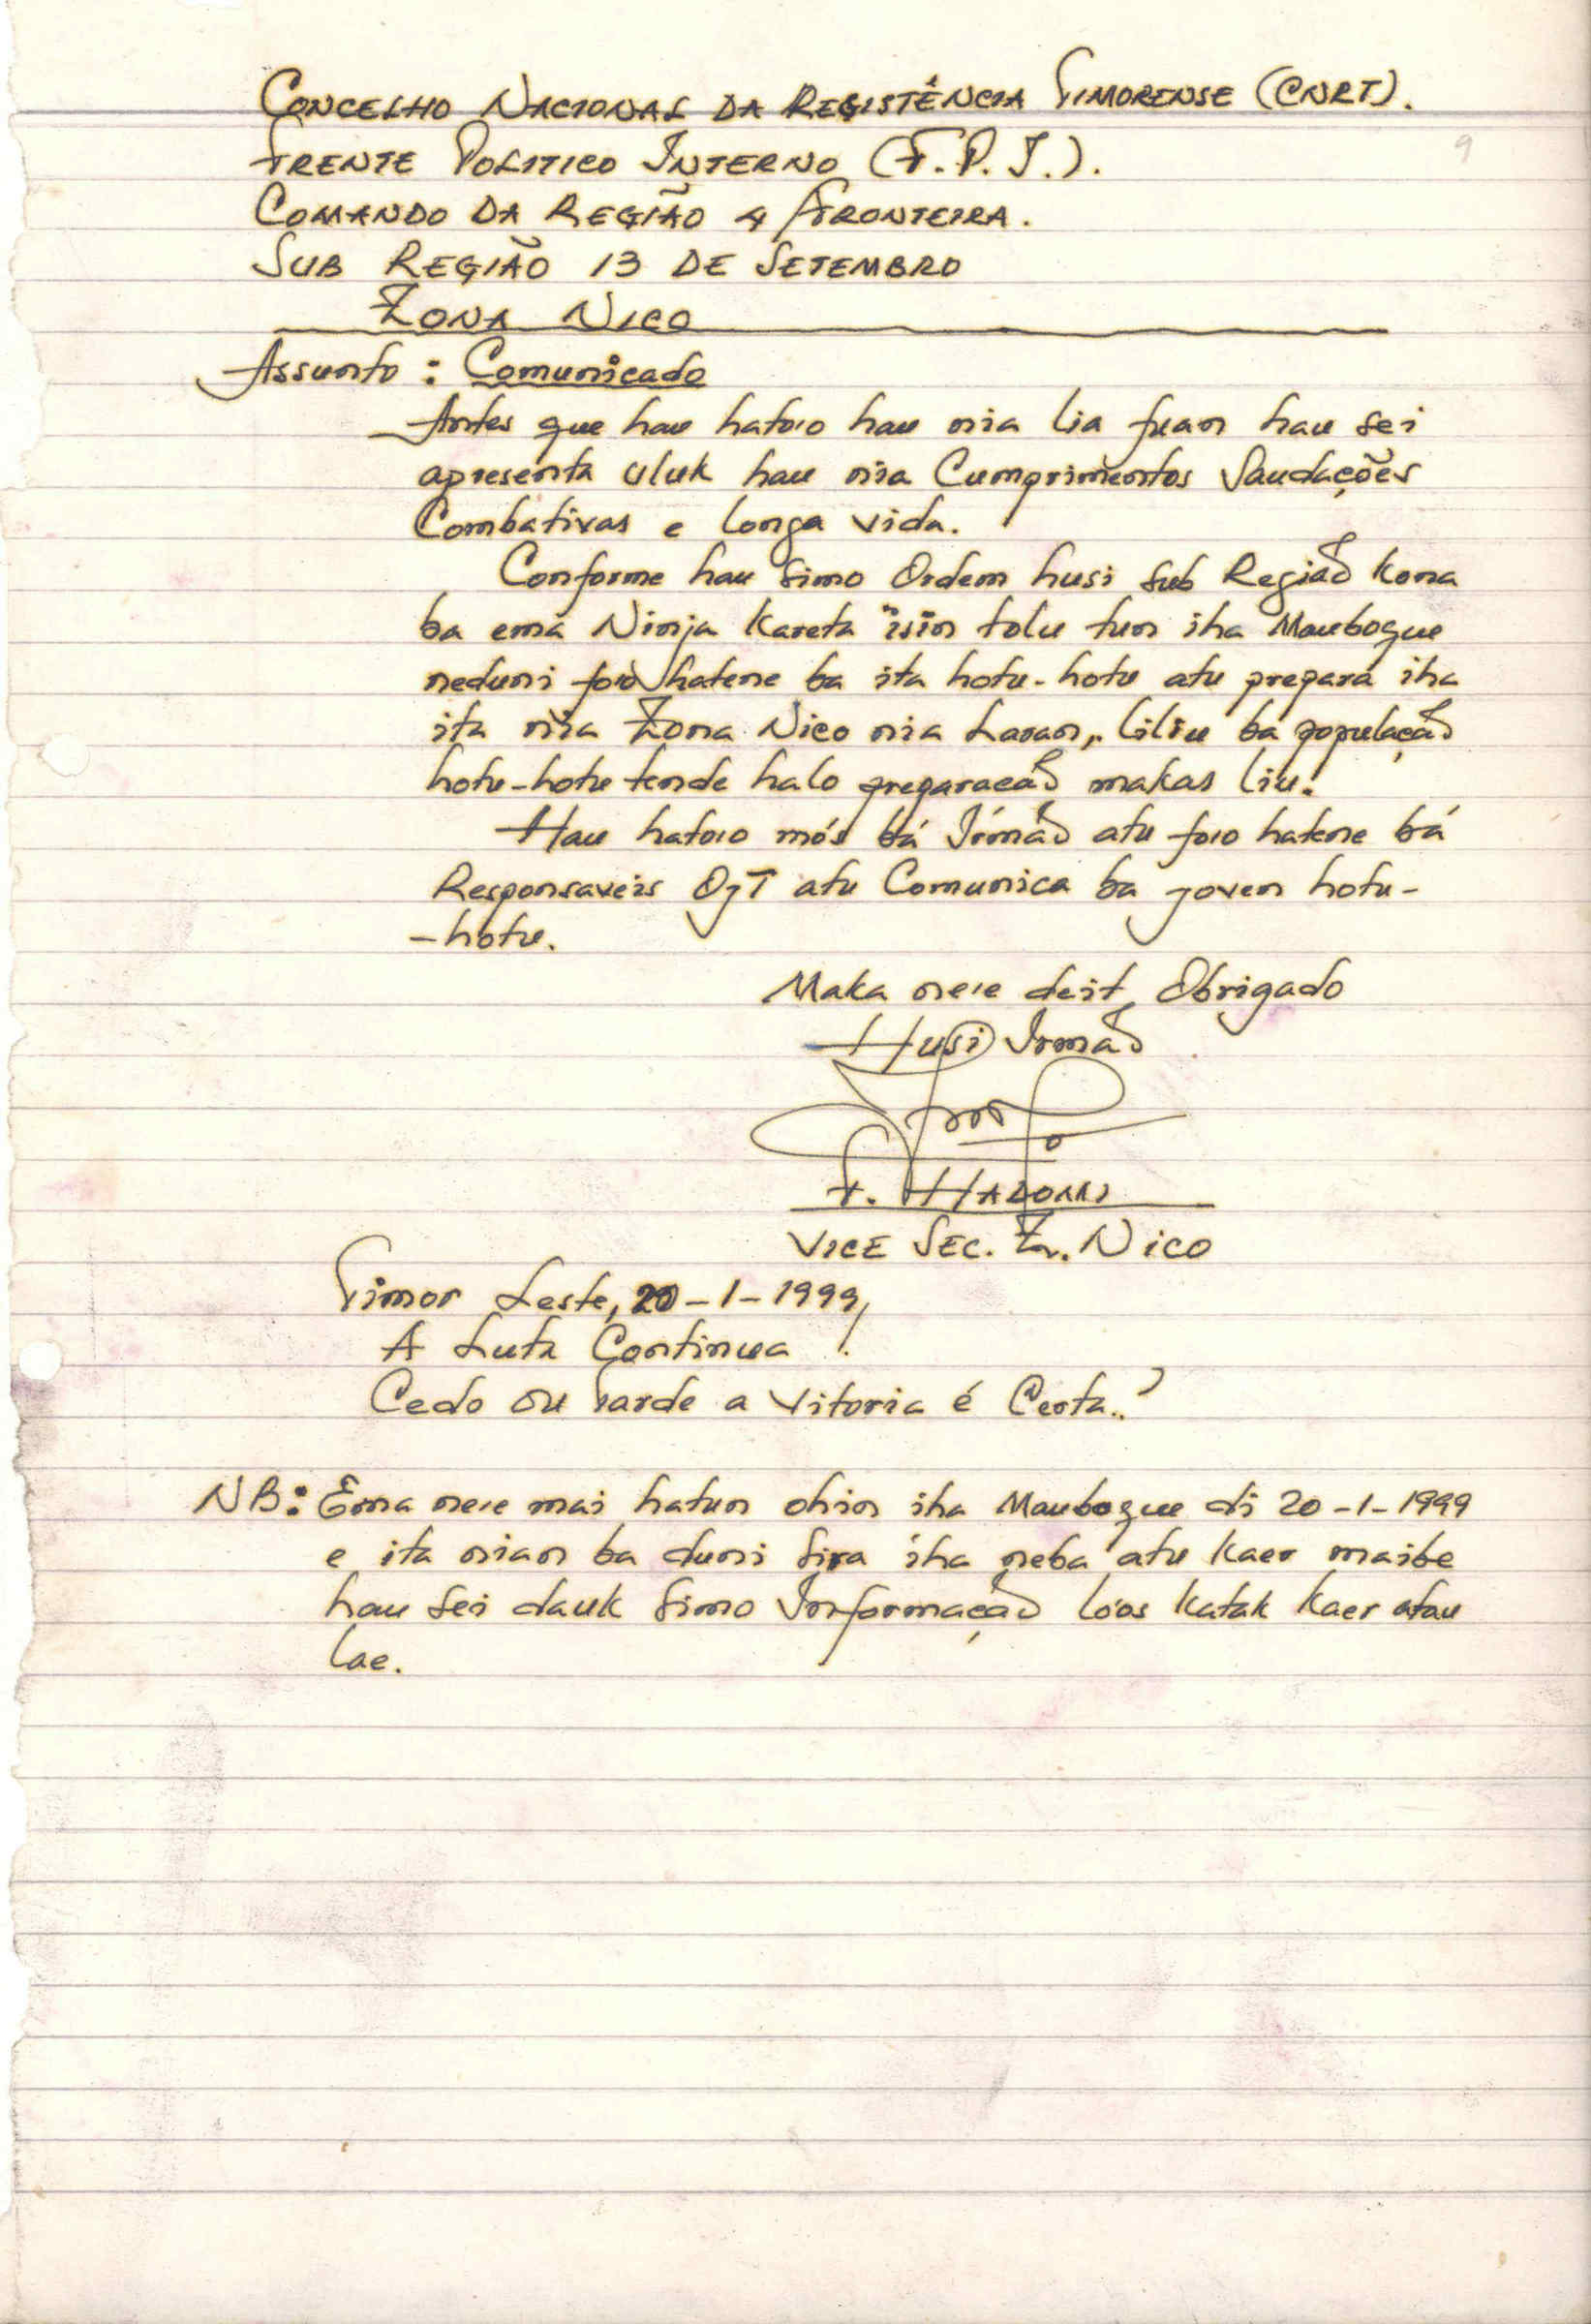 CONCELHO NACIONAL DA RESISTÊNCIA TIMORENSE (CNRT).
9
FRENTE POLITICO INTERNO (F.P.I.).
COMANDO DA REGIÃO 4 FRONTEIRA.
SUB REGIÃO 13 DE SETEMBRO
ZONA NICO
Assunto : Comunicado
Antes que hau hato'o hau nia lia fuan hau sei
apresenta uluk hau nia Cumprimentos Saudações
Combativas e longa vida.
Conforme hau simo Ordem husi Sub Região kona
ba ema Ninja kareta isin tolu tun iha Maubogue
neduni fo'o hatene ba ita hotu-hotu atu prepara iha
ita nia Zona Nico nia Laran, liliu ba população
hotu-hotu tende halo preparacão makas liu.
Hau hato'o mós bá Irmão atu fo'o hatene bá
Responsaveis OJT atu Comunica ba joven hotu-
-hotu.
Maka ne'e deit Obrigado
Husi Irmão
F. HADOMI
VICE SEC. Z. NICO
Timor Leste, 20-1-1999,
A Luta Continua !
Cedo ou Tarde a Vitoria é Certa..
NB: Ema ne'e mai hatun ohin iha Maubogue di 20-1-1999
e ita nian ba duni sira iha neba atu kaer maibe
hau sei dauk simo Informação lo'os katak kaer atau
lae.